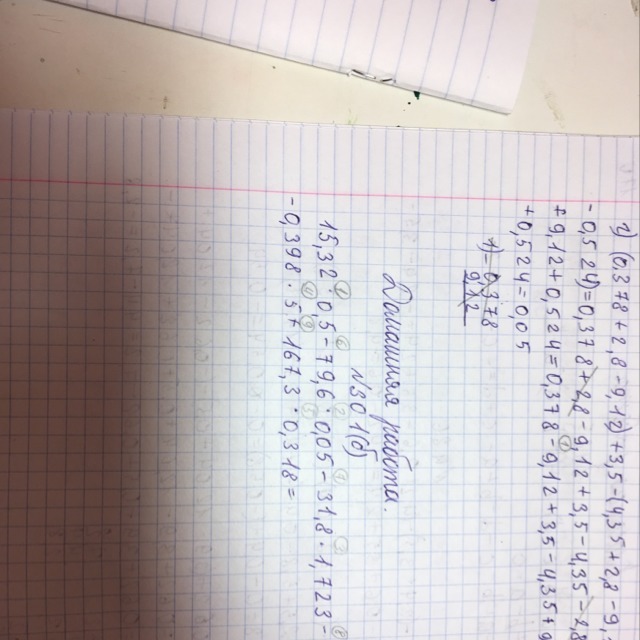 г) (0,378 + 2,8 - 9,12) + 3,5 - (4,35 + 2,8 - 9,
- 0,524) = 0,378 + 2,8 - 9,12 + 3,5 - 4,35 - 2,8
+ 9,12 + 0,524 = 0,378 - 9,12 + 3,5 - 4,35 +
+ 0,524 = 0,05
1) - 0,378
9,12
Домашняя работа.
№301(б)
15,32 · 0,5 - 79,6 · 0,05 - 31,8 · 1,723 -
- 0,398 · 5 + 167,3 · 0,318 =